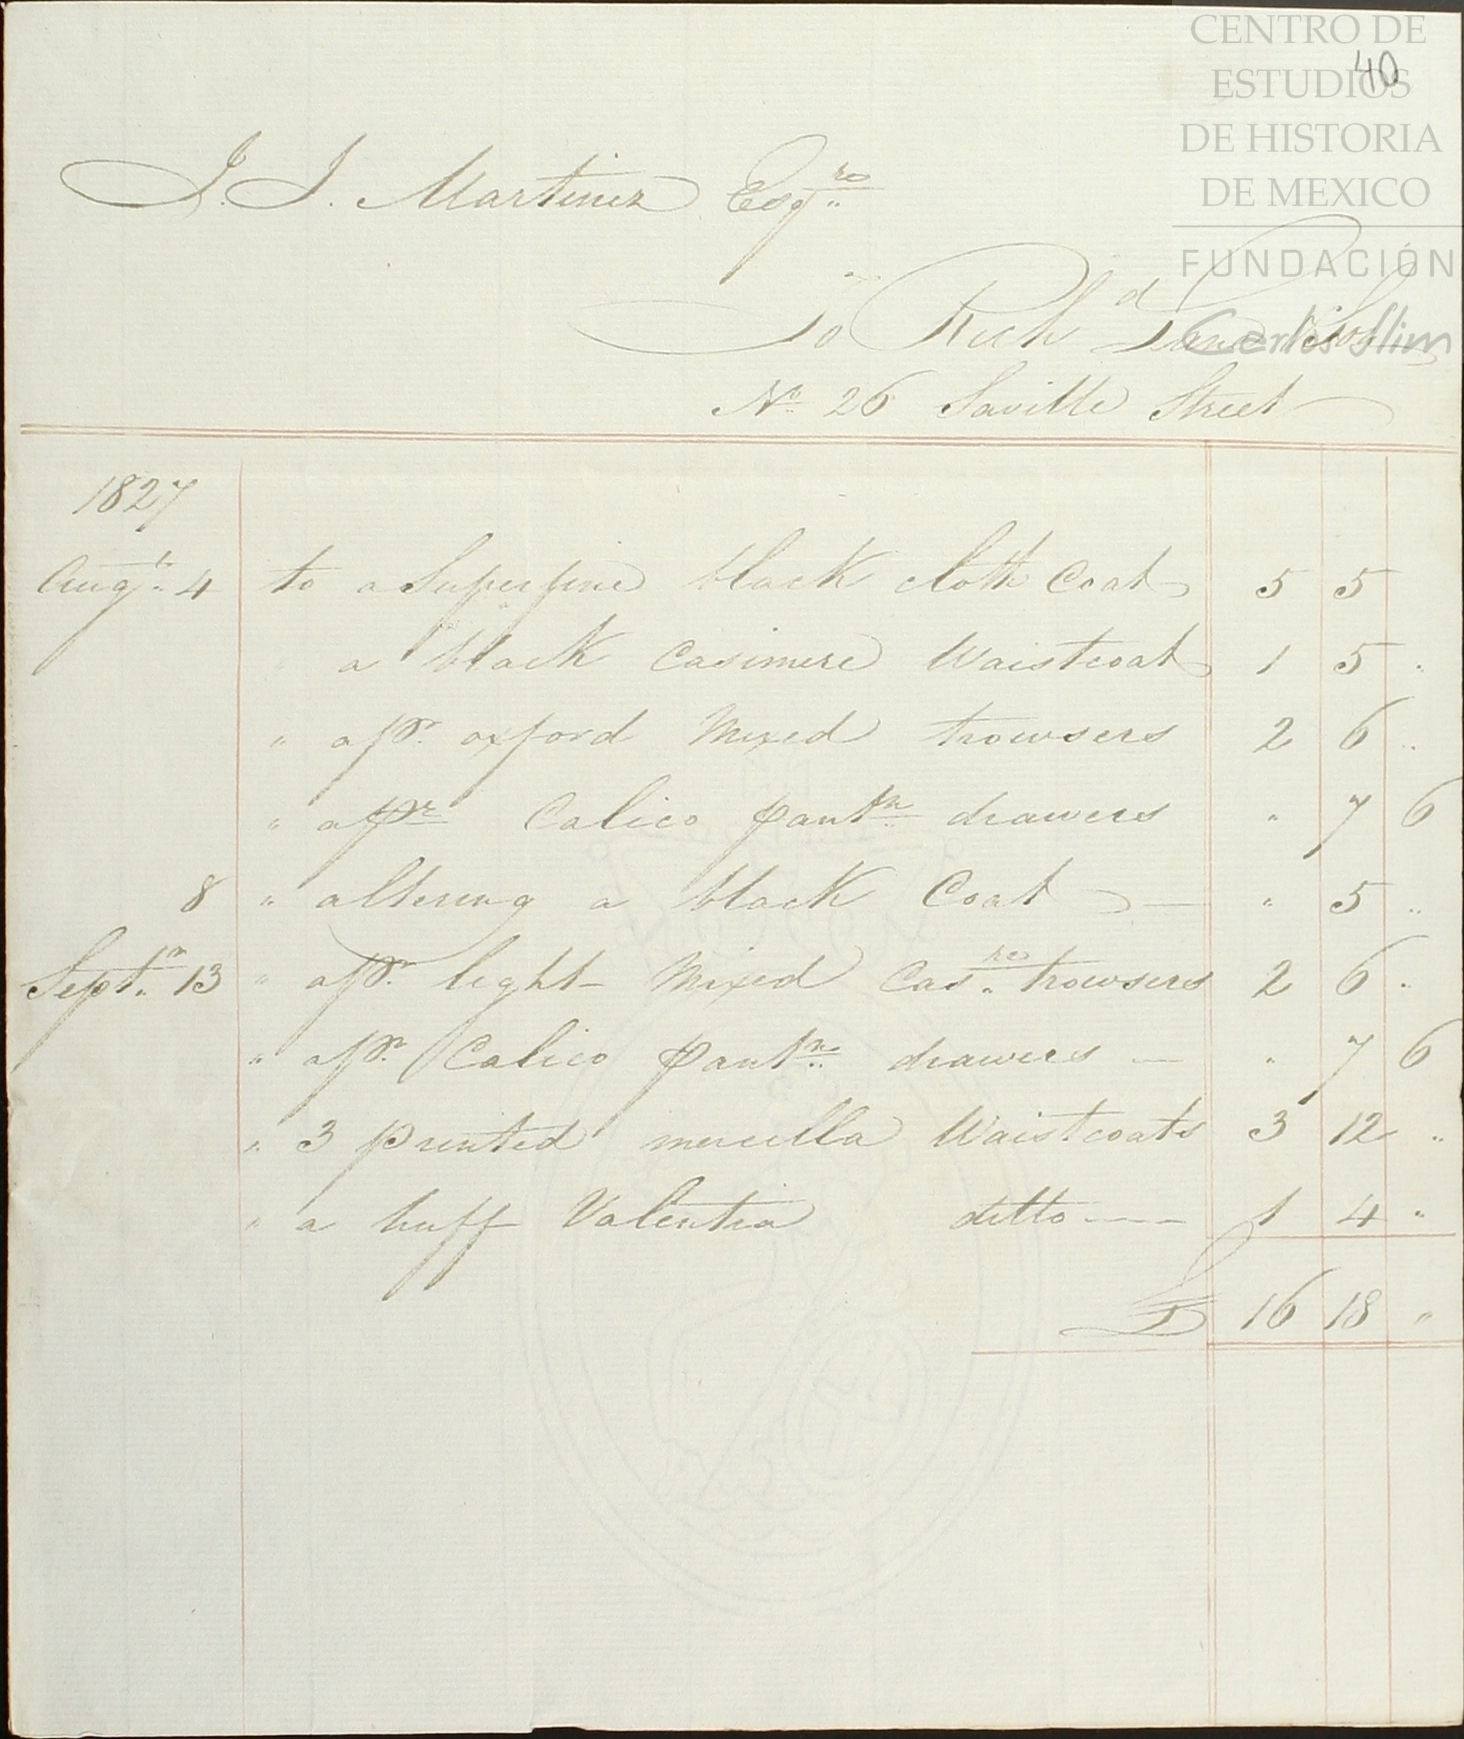 CENTRO DE
ESTUDIOS
DE HISTORIA
DE MEXICO
FUNDACIÓN
Carlos Slim
40
J. J. Martinez Esqre
To Richd & Son
No 26 Saville Street
1827
Augt 4 to a Superfine black cloth Coat 5 5
" a black Casimere Waistcoat 1 5 "
" a pr oxford Mixed trowsers 2 6 "
" a pr Calico pantn drawers " 7 6
8 " altering a black Coat " 5 "
Septr 13 " a pr light Mixed Casre trowsers 2 6 "
" a pr Calico pantn drawers " 7 6
" 3 printed mercella Waistcoats 3 12 "
" a buff Valentia ditto 1 4 "
£ 16 18 "